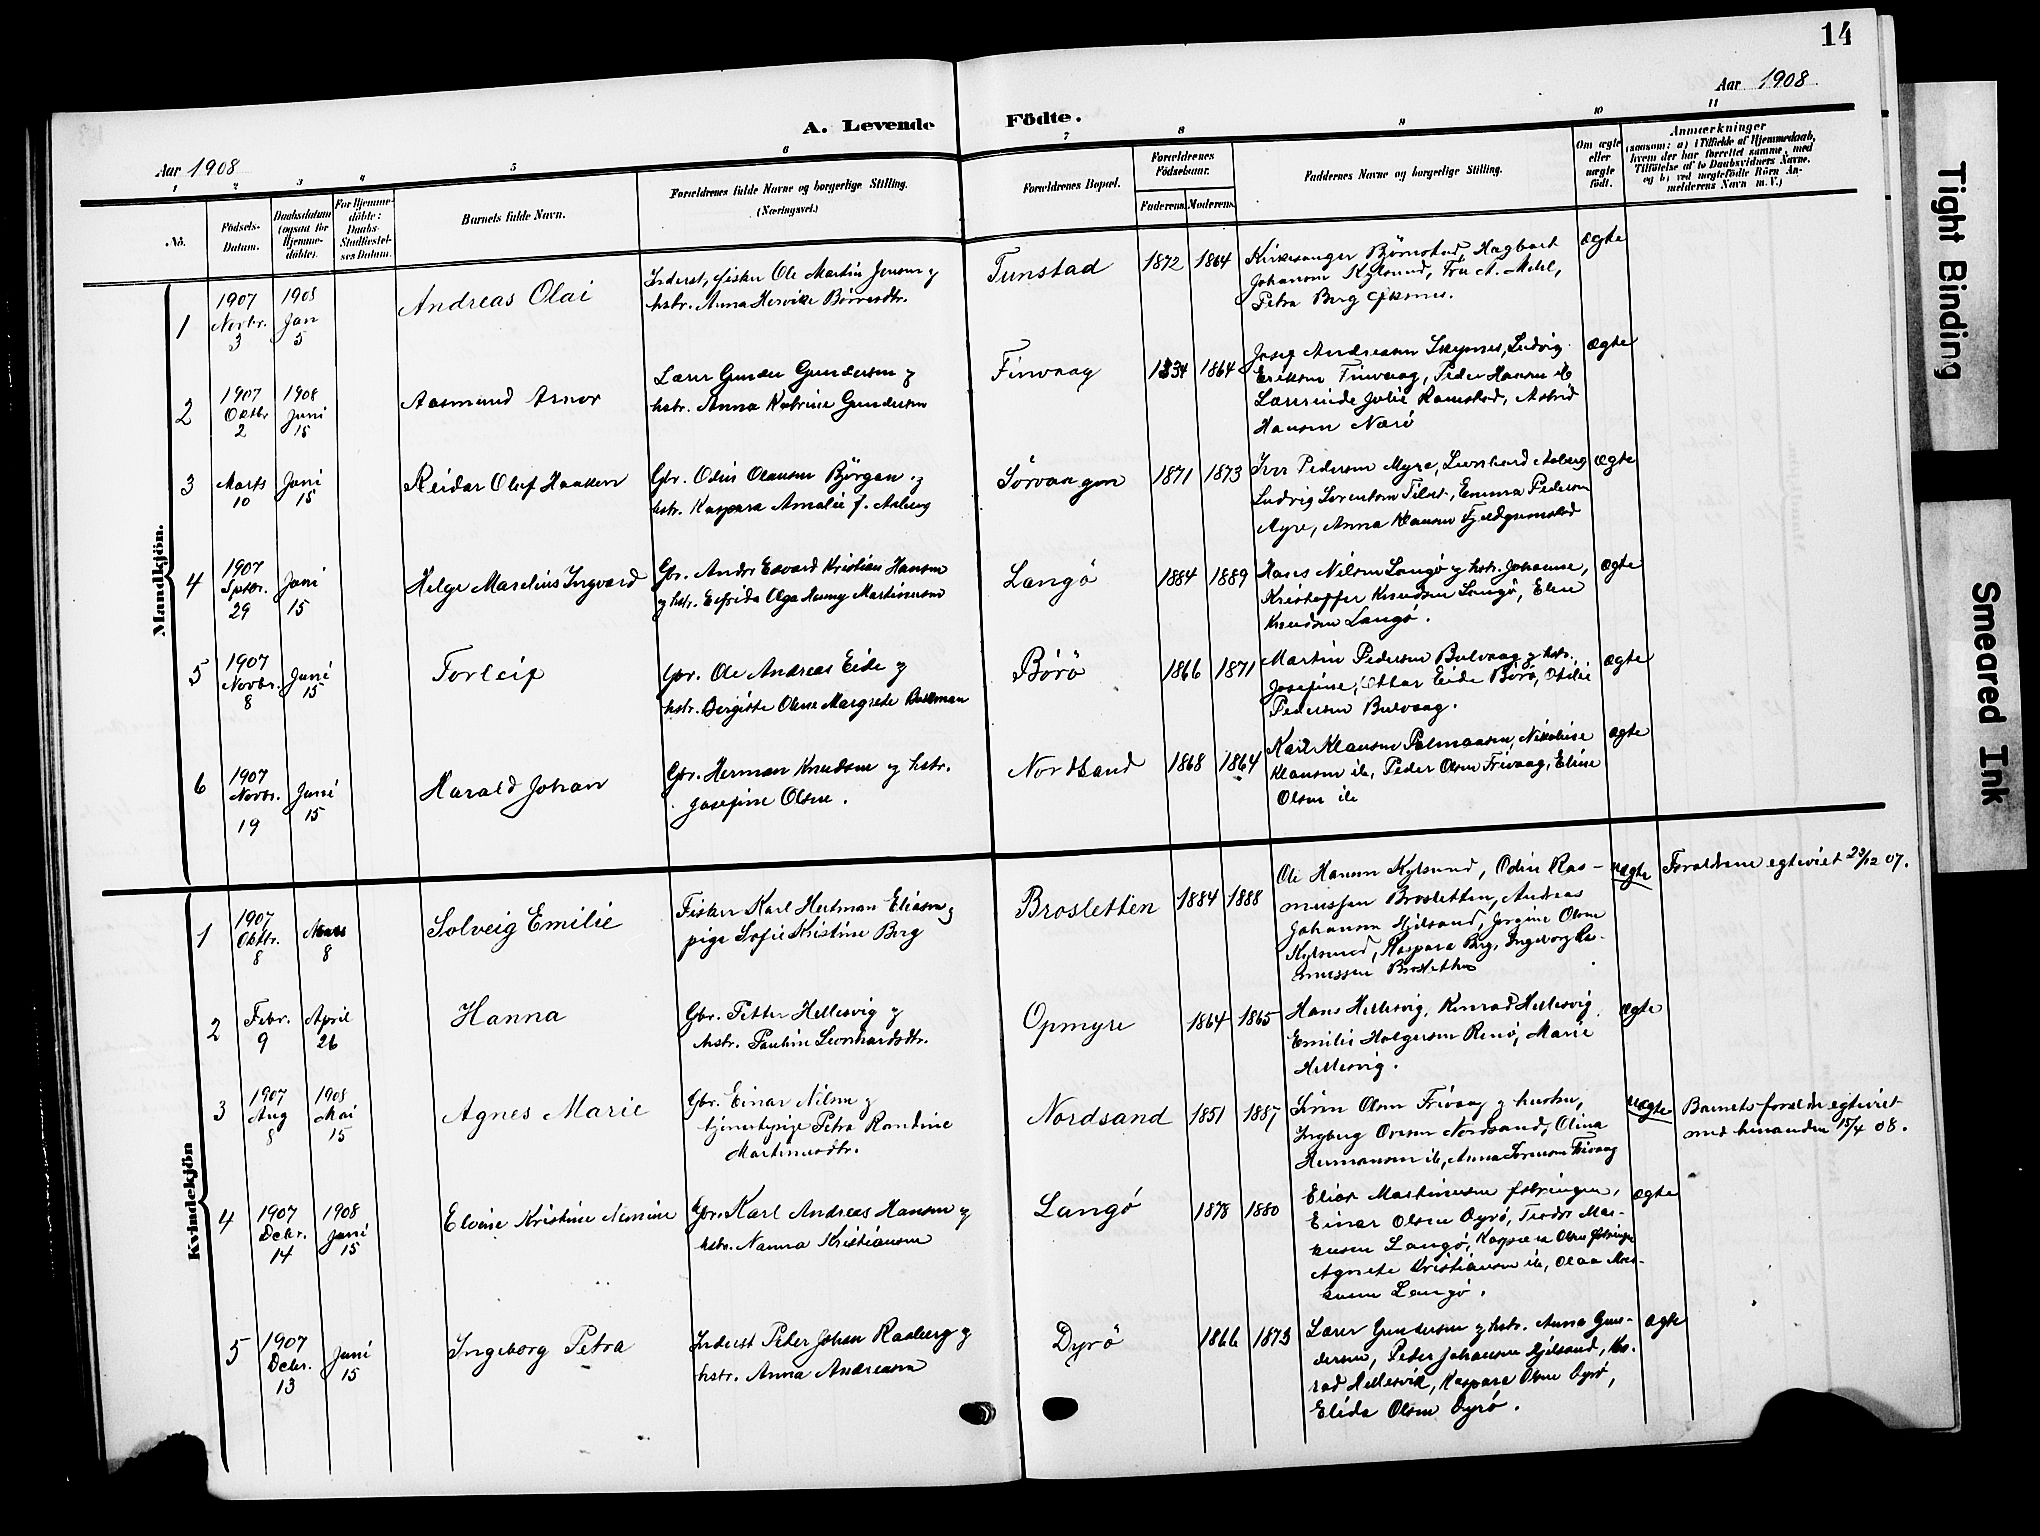 14
Aar 1908
Aar 1908
A. Levende Födte.
1 2 3 4 5 6 7 8 9 10 11
No.
Födsels-
Datum.
Daabsdatum
(ogsaa for
Hjemme-
döbte).
For Hjemme-
döbte:
Daabs-
Stadfæstel-
ses Datum.
Barnets fulde Navn.
Forældrenes fulde Navne og borgerlige Stilling.
(Næringsvei.)
Forældrenes Bopæl.
Forældrenes
Födselsaar.
Faderens. Moderens.
Faddernes Navne og borgerlige Stilling.
Om ægte
eller
uægte
födt.
Anmærkninger
(saasom: a) i Tilfælde af Hjemmedaab,
hvem der har forrettet samme, med
Tilföielse af to Daabsvidners Navne,
og b) ved uægtefödte Börn An-
melderens Navn m. V.)
Mandkjön.
1
1907
Novbr.
3
1908
Jan
5
Andreas Olai
Inderst, fisker Ole Martin Jensen og
hstr. Anna Hervike Børresdtr.
Tunstad
1872 1864
Kirkesanger Björnstad, Hagbart
Johansen Kjelsund, Fru A. Mehl,
Petra Berg
ægte
2
1907
Oktbr
2
1908
Juni
15
Aasmund Arnor
Lærer Gunder Gundersen og
hstr. Anna Katrine Gundersen
Finvaag
1834 1864
Josef Andreasen Skepnes, Ludvig
Eriksen Finvaag, Peder Hansen ib
Lærerinde Julie Ramstad, Astrid
Hansen Nærö
ægte
3
Marts
10
Juni
15
Reidar Oluf Haaken
Gbr. Odin Olausen Björgan og
hstr. Kaspara Amalie f. Aaberg
Sörvaagen
1871 1873
Iver Pedersen Myre, Leonhard Aaberg
Ludvig Lorentsen Tilset, Emma Pedersen
Myre, Anna Klausen
ægte
4
1907
Sptbr.
29
Juni
15
Helge Marelius Ingvard
Gbr. Andor Edvard Kristian Hansen
og hstr. Elfrida Olga Henny Martinsen
Langö
1884 1889
Hans Nilsen Langö og hstr. Johanne,
Kristoffer Knudsen Langö, Eline
Knudsen Langö.
ægte
5
1907
Novbr.
8
Juni
15
Torleif
Gbr. Ole Andreas Eide og
hstr. Bergitte Oline Margrete Buckman
Börö
1866 1871
Martin Pedersen Bulvaag og hstr.
Josefine, Ottar Eide Börö, Otelie
Pedersen Bulvaag.
ægte
6
1907
Novbr.
19
Juni
15
Harald Johan
Gbr. Herman Knudsen og hstr.
Josefine Olsen.
Nordsand
1868 1864
Karl Klausen Nikoline
Klausen ib, Peder Olsen Frivaag, Eline
Olsen ib
ægte
Kvindekjön
1
1907
Oktbr.
8
Mars
8
Solveig Emilie
Fisker Karl Hertman Eliasen og
pige Sofie Kristine Berg
Brosletten
1884 1888
Ole Hansen Kjelsund, Odin Ras-
mussen Brosletten, Andreas
Johansen Mjelsand, Jörgine Olsen
Kjelsund, Kaspara Berg, Ingeborg Ra-
smussen Brosletten
uægte
Forældrene egteviet 29/12 07.
2
Febr.
9
April
26
Hanna
Gbr. Petter Hellesvig og
hstr. Pauline Leonhardsdtr.
Opmyre
1864 1865
Hans Hellesvig, Konrad Hellesvig
Emilie Holgersen Renö, Marie
Hellesvig.
ægte
3
1907
Aug
8
1908
Mai
15
Agnes Marie
Gbr. Einar Nilsen og
tjenestepige Petra Randine
Martinusdtr.
Nordsand
1851 1887
Sören Olsen Frivaag og hustru,
Ingberg Nordsand, Olina
Hermansen ib, Anna Sörensen Frivaag
uægte
Barnets forældre egteviet
med hinanden 15/4 08.
4
1907
Debr.
14
1908
Juni
15
Elvine Kristine Nennine
Gbr. Karl Andreas Hansen og
hstr. Nanna Kristiansen
Langö
1878 1880
Elias Martinusen
Einar Olsen Dyrö, Teodor Mar-
kusen Langö, Kaspara Olsen
Agnete Kristiansen ib, Olaa Mar-
kusen Langö.
ægte
5
1907
Debr.
13
Juni
15
Ingeborg Petra
Inderst Peder Johan Raaberg og
hstr. Anna Andreasen
Dyrö
1866 1873
Lærer Gundersen og hstr. Anna Gun-
dersen, Peder Johansen Mjelsand, Kon-
rad Hellesvik, Kaspara Olsen Dyrö,
Elida Olsen Dyrö.
ægte
Tight Binding
Smeared Ink